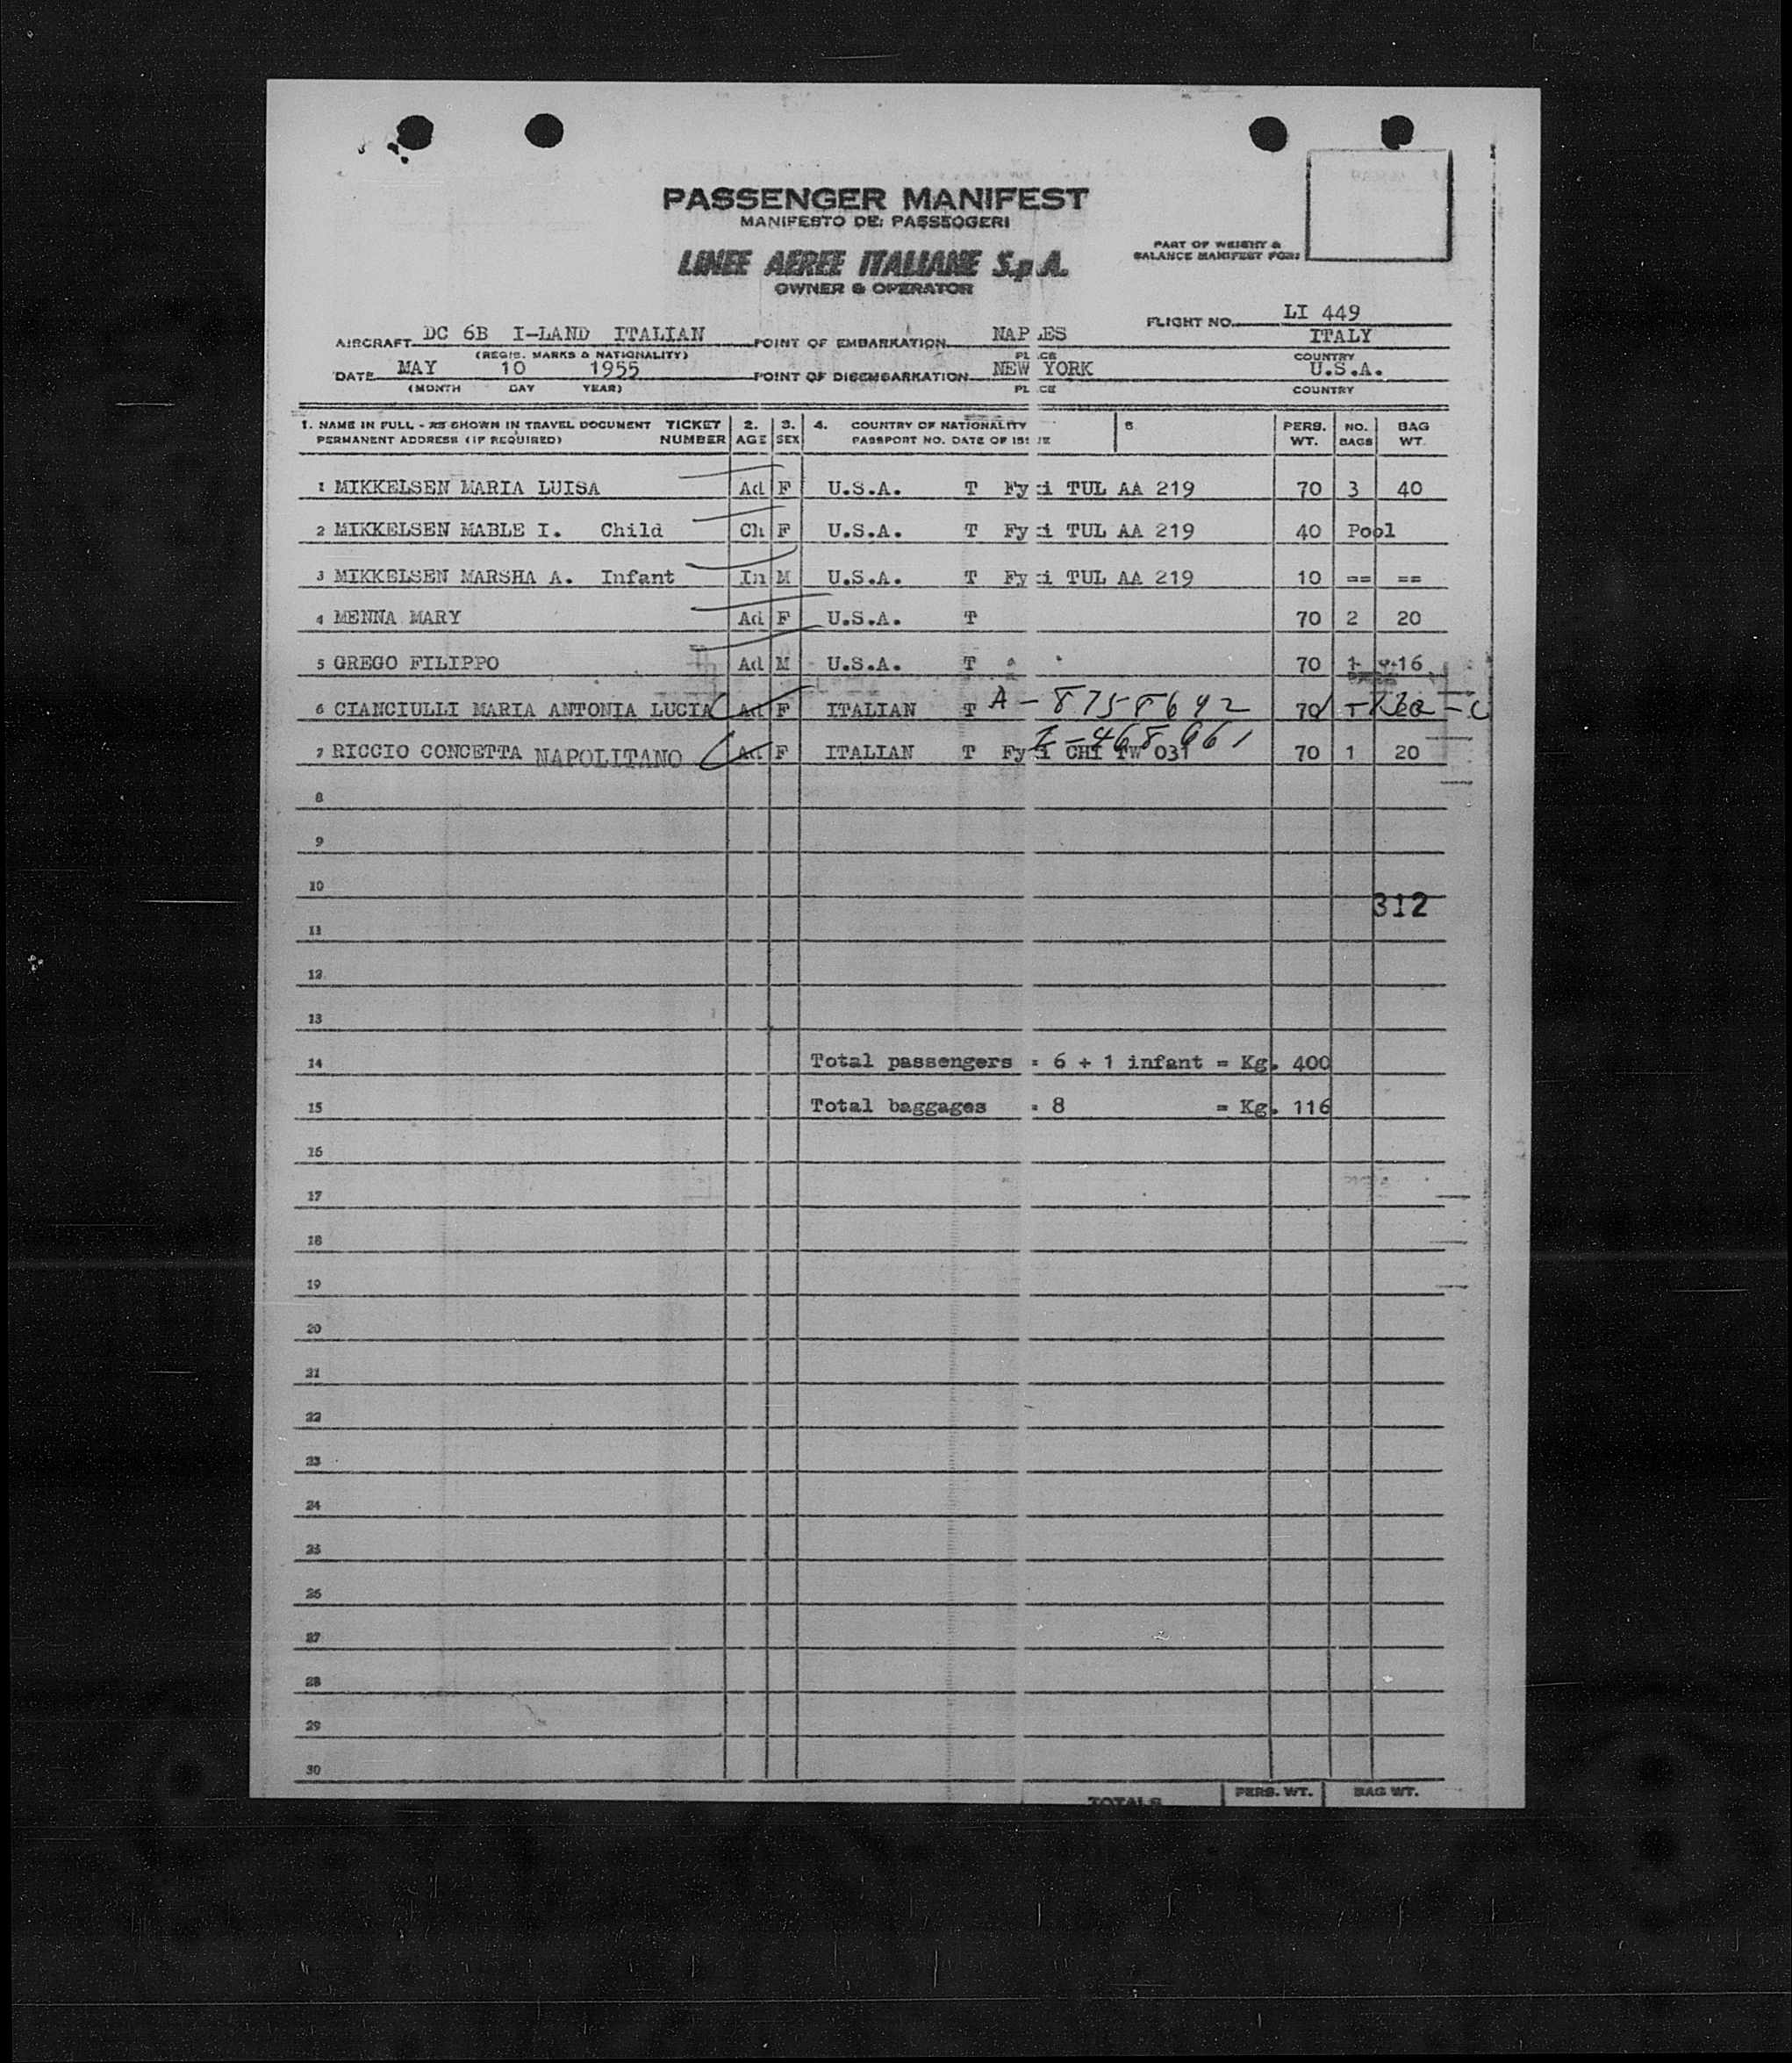 PASSENGER MANIFEST
MANIFESTO DEI PASSEGGERI
LINEE AEREE ITALIANE S.p.A.
OWNER & OPERATOR
PART OF WEIGHT &
BALANCE MANIFEST FOR:
FLIGHT NO. LI 449
AIRCRAFT DC 6B I-LAND ITALIAN POINT OF EMBARKATION NAP ES ITALY
(REGIS. MARKS & NATIONALITY) PL CE COUNTRY
DATE MAY 10 1955 POINT OF DISEMBARKATION NEW YORK U.S.A.
(MONTH DAY YEAR) PL CE COUNTRY
1. NAME IN FULL - AS SHOWN IN TRAVEL DOCUMENT TICKET 2. 3. 4. COUNTRY OF NATIONALITY PERS. NO. BAG
PERMANENT ADDRESS (IF REQUIRED) NUMBER AGE SEX PASSPORT NO. DATE OF ISSUE WT. BAGS WT.
1 MIKKELSEN MARIA LUISA Ad F U.S.A. T Fy i TUL AA 219 70 3 40
2 MIKKELSEN MABLE I. Child Ch F U.S.A. T Fy i TUL AA 219 40 Pool
3 MIKKELSEN MARSHA A. Infant In M U.S.A. T Fy i TUL AA 219 10 == ==
4 MENNA MARY Ad F U.S.A. T 70 2 20
5 GREGO FILIPPO Ad M U.S.A. T 70 1 16
6 CIANCIULLI MARIA ANTONIA LUCIA Ad F ITALIAN T A-8758692 70
7 RICCIO CONCETTA NAPOLITANO Ad F ITALIAN T Fy i CHI TW 031 70 1 20
8
9
10
312
11
12
13
14 Total passengers = 6 + 1 infant = Kg. 400
15 Total baggages = 8 = Kg. 116
16
17
18
19
20
21
22
23
24
25
26
27
28
29
30
TOTALS PERS. WT. BAG WT.